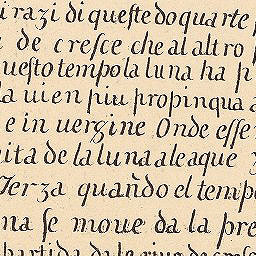 i razi di queste do quarte
de cresce che al altro
uesto tempo la luna ha p
a uien piu propinqua a
e in uergine Onde esse
ita de la luna a le aque
Terza quando el temp
na se moue da la pre